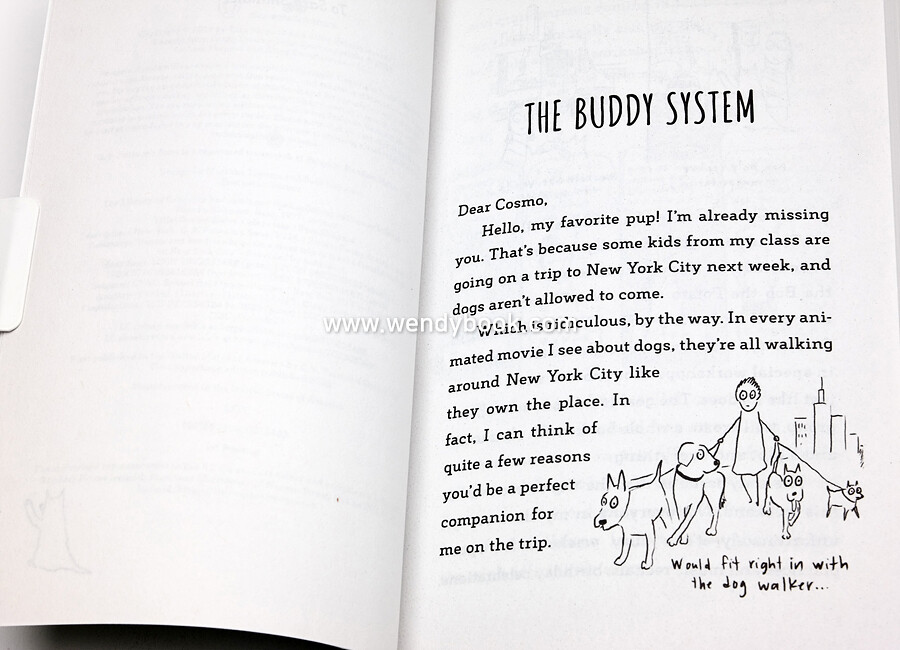 THE BUDDY SYSTEM
Dear Cosmo,
Hello, my favorite pup! I'm already missing
you. That's because some kids from my class are
going on a trip to New York City next week, and
dogs aren't allowed to come.
www.wendybook.com
Which is ridiculous, by the way. In every ani-
mated movie I see about dogs, they're all walking
around New York City like
they own the place. In
fact, I can think of
quite a few reasons
you'd be a perfect
companion for
me on the trip.
Would fit right in with
the dog walker...